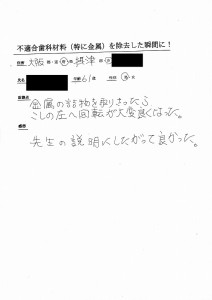 不適合歯科材料（特に金属）を除去した瞬間に！
住所 大阪 摂津
氏名 年齢 61 歳
金属の詰物を取りさったら
こしの左へ回転が大変良くなった。
先生の説明にしたがって良かった。